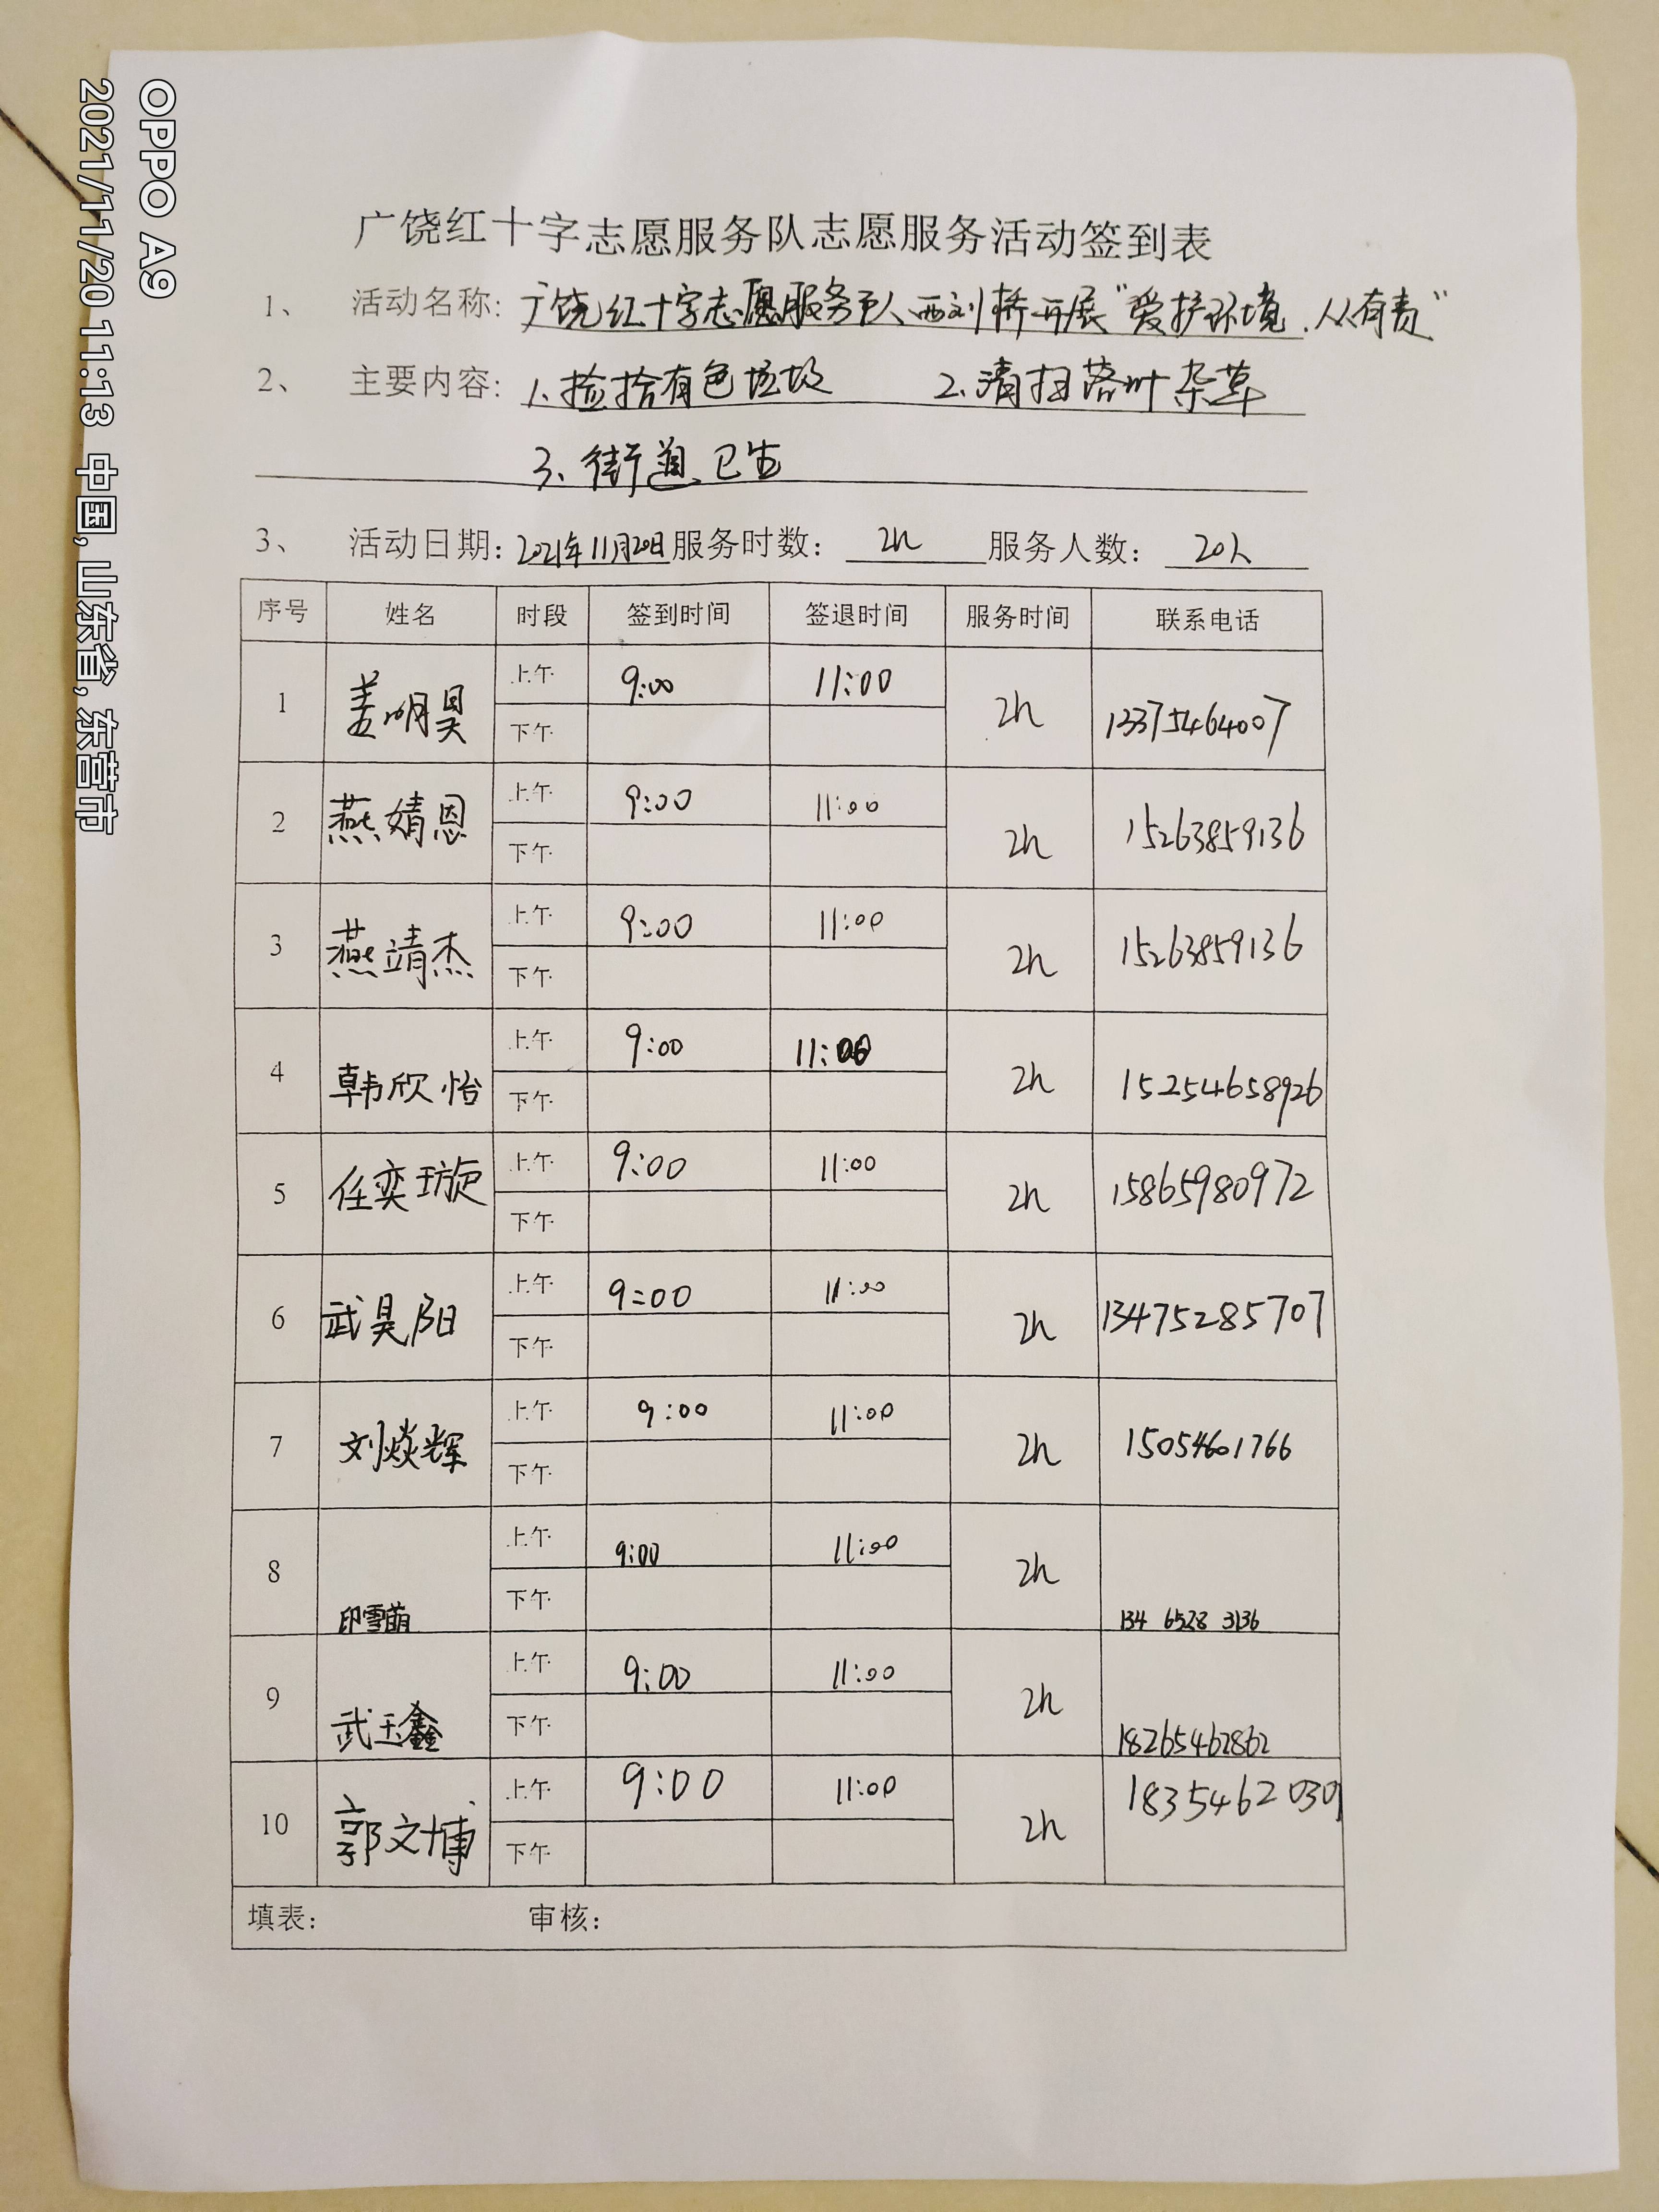 广饶红十字志愿服务队志愿服务活动签到表
1、 活动名称: 广饶红十字志愿服务队西刘桥开展“爱护环境.人人有责”
2、 主要内容: 1.捡拾有色垃圾 2.清扫落叶杂草
3、街道卫生
3、 活动日期: 2021年11月20日 服务时数: 2h 服务人数: 20人
序号 姓名 时段 签到时间 签退时间 服务时间 联系电话
1 姜明昊 上午 9:00 11:00 2h 13375464007
下午
2 燕婧恩 上午 9:00 11:00 2h 15263859136
下午
3 燕靖杰 上午 9:00 11:00 2h 15263859136
下午
4 韩欣怡 上午 9:00 11:00 2h 15254658926
下午
5 任奕璇 上午 9:00 11:00 2h 15865980972
下午
6 武昊阳 上午 9:00 11:00 2h 13475285707
下午
7 刘焱辉 上午 9:00 11:00 2h 15054601766
下午
8 印雪萌 上午 9:00 11:00 2h 134 6528 3136
下午
9 武玉鑫 上午 9:00 11:00 2h 18265462862
下午
10 郭文博 上午 9:00 11:00 2h 18354620301
下午
填表: 审核:
OPPO A9
2021/11/20 11:13 中国, 山东省, 东营市